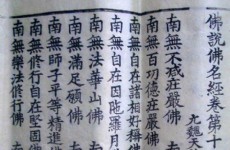 佛說佛名經卷第十
元魏天
南無不莊嚴佛
南無百功德莊嚴佛
南無自在諸相好稱
南無自在因陀羅月
南無法華山佛
南無滿足願佛
南無師子平等精進
南無修行自在堅固
南無樂法修行佛